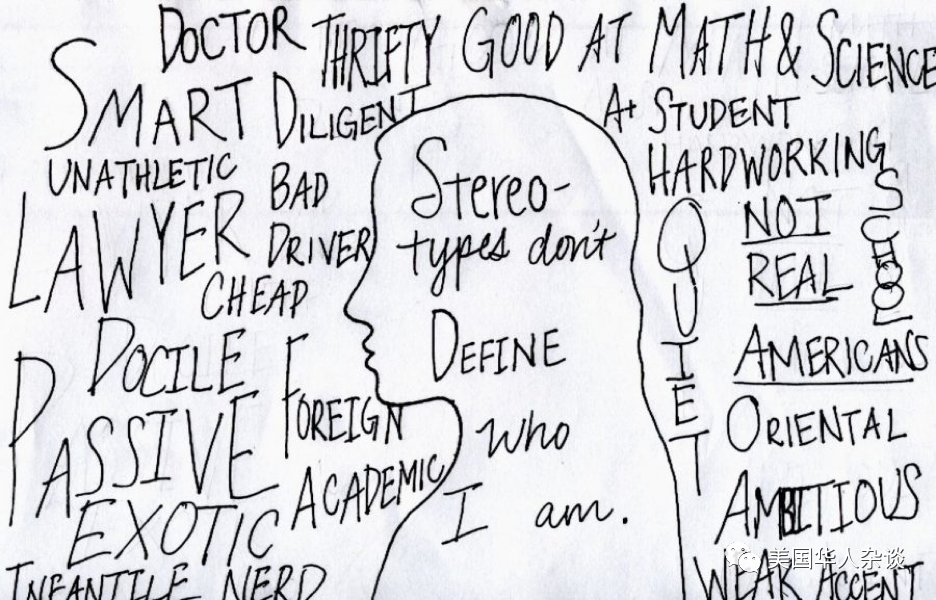 DOCTOR
THRIFTY
GOOD AT MATH & SCIENCE
SMART
DILIGENT
A+ STUDENT
UNATHLETIC
BAD
DRIVER
HARDWORKING
LAWYER
CHEAP
Stereo-
types don't
DEFINE
who
I am.
QUIET
NOT
REAL
AMERICANS
DOCILE
FOREIGN
PASSIVE
ACADEMIC
ORIENTAL
EXOTIC
AMBITIOUS
INFANTILE NERD
WEAK ACCENT
美国华人杂谈